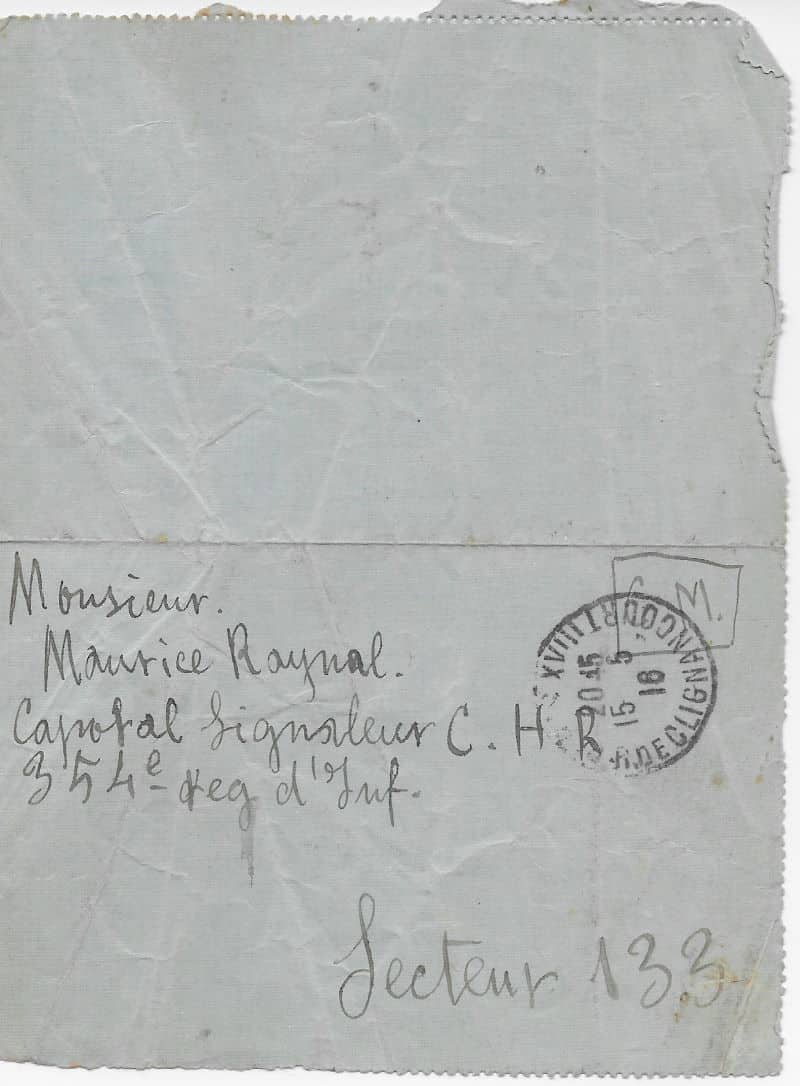 F. M.
Monsieur.
Maurice Raynal.
Caporal Signaleur C. H. R
354e reg d'Inf.
Secteur 133
R. DE CLIGNANCOURT
20 45
15 5
16